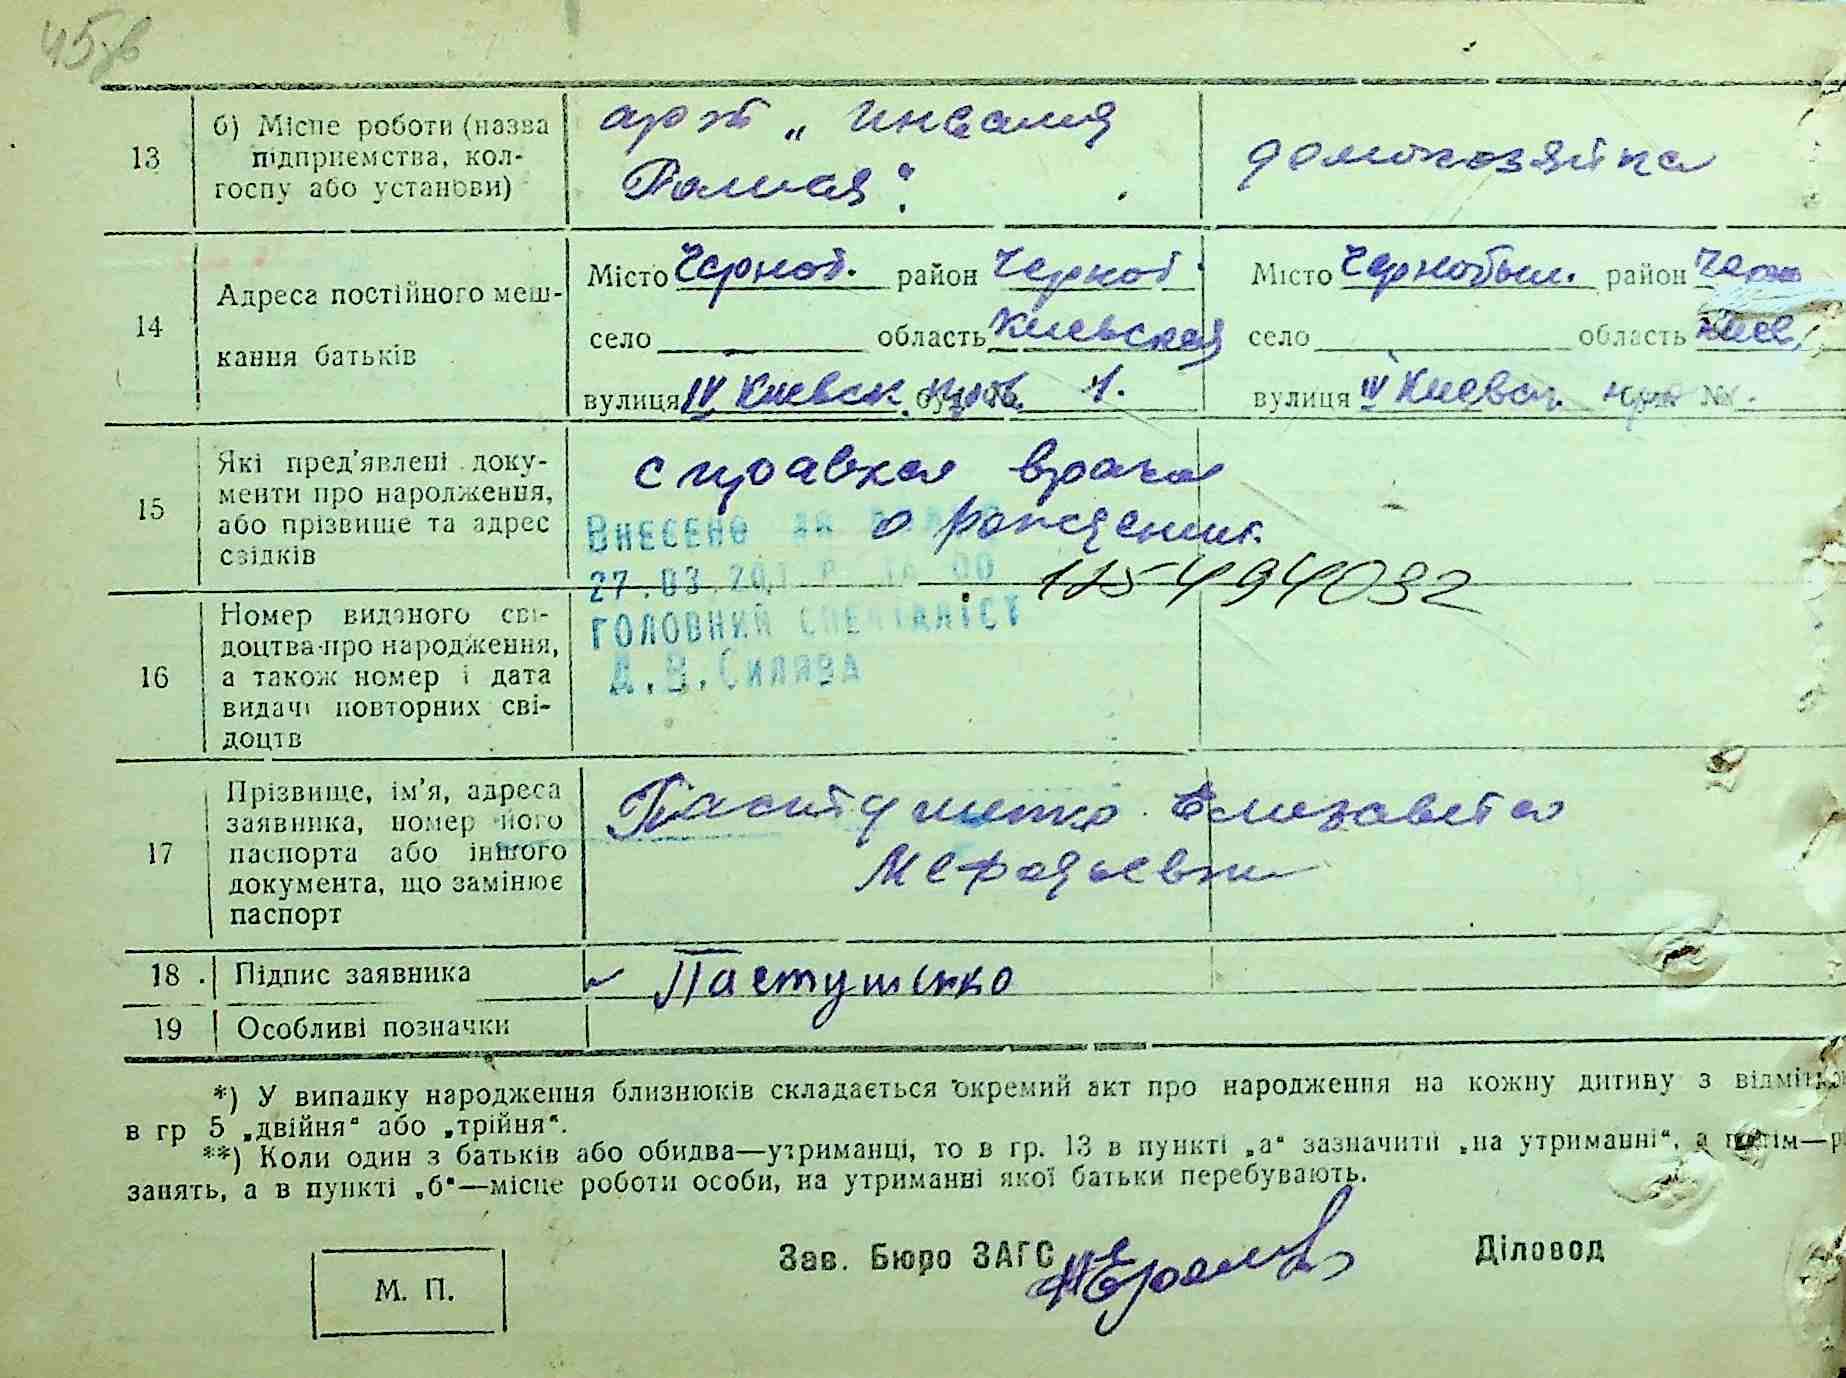 45зв
13
б) Місце роботи (назва
підприємства, кол-
госпу або установи)
арт „ инвалид
домохозяйка
14
Адреса постійного меш-
кання батьків
Місто Черноб. район Черноб
село область Киевская
вулиця IV Киевск. 1.
Місто Чернобыл. район Черн
село область Киев,
вулиця IV Киевск. №
15
Які пред'явлені доку-
менти про народження,
або прізвище та адрес
свідків
справка врача
о рождении.
Внесено
27.03.20
головний спеціаліст
Д.В.Силява
125494032
16
Номер виданого сві-
доцтва про народження,
а також номер і дата
видачі повторних сві-
доцтв
17
Прізвище, ім'я, адреса
заявника, номер його
паспорта або іншого
документа, що замінює
паспорт
Пастушенко Елизавета
Мефодьевна
18
Підпис заявника
Пастушенко
19
Особливі позначки
*) У випадку народження близнюків складається окремий акт про народження на кожну дитину з відмітко
в гр 5 „двійня“ або „трійня“.
**) Коли один з батьків або обидва—утриманці, то в гр. 13 в пункті „а“ зазначити „на утриманні“, а потім—р
занять, а в пункті „б“—місце роботи особи, на утриманні якої батьки перебувають.
М. П.
Зав. Бюро ЗАГС
Діловод